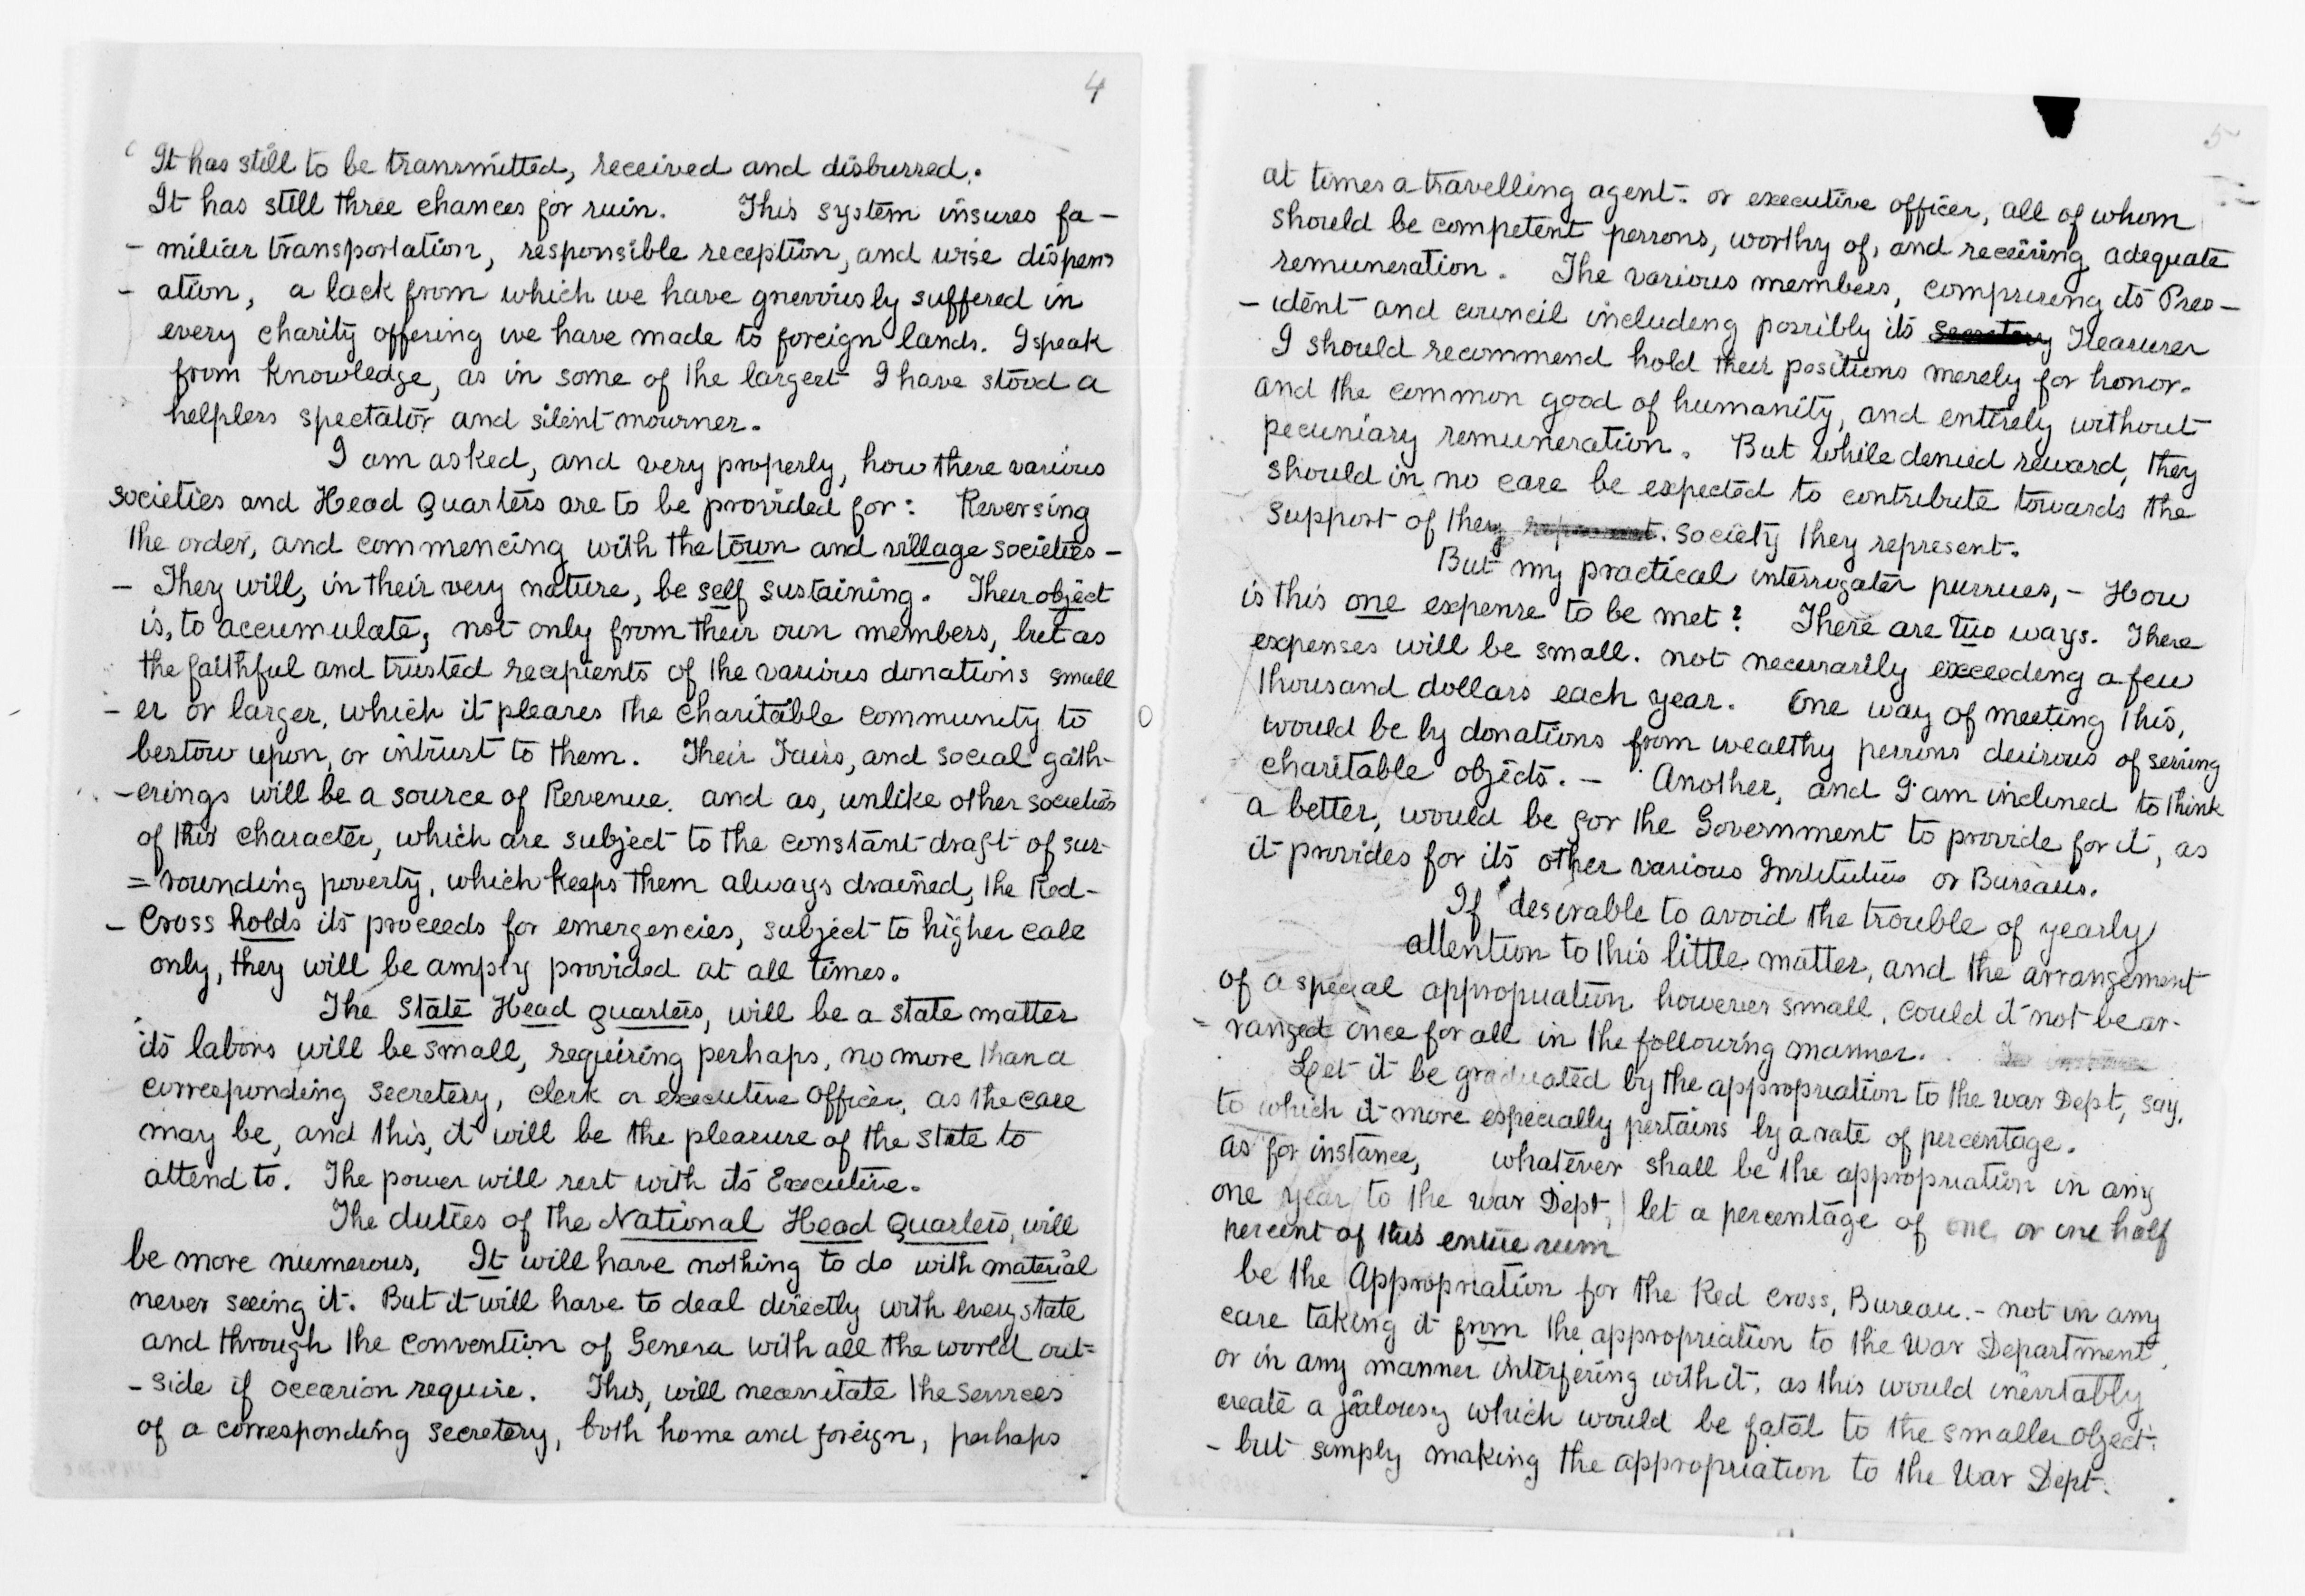 4
It has still to be transmitted, received and disbursed.
It has still three chances for ruin. This system insures fa-
- miliar transportation, responsible reception, and wise dispens
- ation, a lack from which we have grieviously suffered in
every charity offering we have made to foreign lands. I speak
from knowledge, as in some of the largest I have stood a
helpless spectator and silent mourner.
I am asked, and very properly, how these various
societies and Head Quarters are to be provided for: Reversing
the order, and commencing with the town and village societies -
- They will, in their very nature, be self sustaining. Their object
is, to accumulate, not only from their own members, but as
the faithful and trusted recipients of the various donations small
- er or larger, which it pleases the charitable community to
bestow upon, or intrust to them. Their Fairs, and social gath-
- erings will be a source of Revenue. and as, unlike other societies
of this character, which are subject to the constant draft of sur-
= rounding poverty, which keeps them always drained, the Red-
- Cross holds its proceeds for emergencies, subject to higher call
only, they will be amply provided at all times.
The State Head quarters, will be a state matter
its labors will be small, requiring perhaps, no more than a
corresponding secretery, clerk or executive officer, as the case
may be, and this, it will be the pleasure of the State to
attend to. The power will rest with its Executive.
The duties of the National Head Quarters, will
be more numerous, It will have nothing to do with material
never seeing it. But it will have to deal directly with every state
and through the convention of Geneva with all the world out=
- side if occasion require. This, will necessitate the services
of a corresponding secretery, both home and foreign, perhaps
5
at times a travelling agent. or executive officer, all of whom
should be competent persons, worthy of, and receiving adequate
remuneration. The various members, comprising its Pres-
- ident and council including possibly its Secretary Treasurer
I should recommend hold their positions merely for honor.
and the common good of humanity, and entirely without
pecuniary remuneration. But while denied reward, they
should in no case be expected to contribute towards the
support of they represent. society they represent.
But my practical interrogater pursues, - How
is this one expense to be met? There are two ways. These
expenses will be small. not necessarily exceeding a few
thousand dollars each year. One way of meeting this,
would be by donations from wealthy persons desirous of serving
charitable objects. - Another, and I am inclined to think
a better, would be for the Government to provide for it, as
it provides for its other various Institutions or Bureaus.
If desirable to avoid the trouble of yearly
attention to this little matter, and the arrangement
of a special appropriation however small, could it not be ar-
= ranged once for all in the following manner. for instance
Let it be graduated by the appropriation to the War Dept, say,
to which it more especially pertains by a rate of percentage.
as for instance, whatever shall be the appropriation in any
one year to the War Dept, let a percentage of one or one half
percent of this entire sum
be the Appropriation for the Red Cross, Bureau. - not in any
case taking it from the appropriation to the War Department,
or in any manner interfering with it, as this would inevitably
create a jealousy which would be fatal to the smaller object.
- but simply making the appropriation to the War Dept.